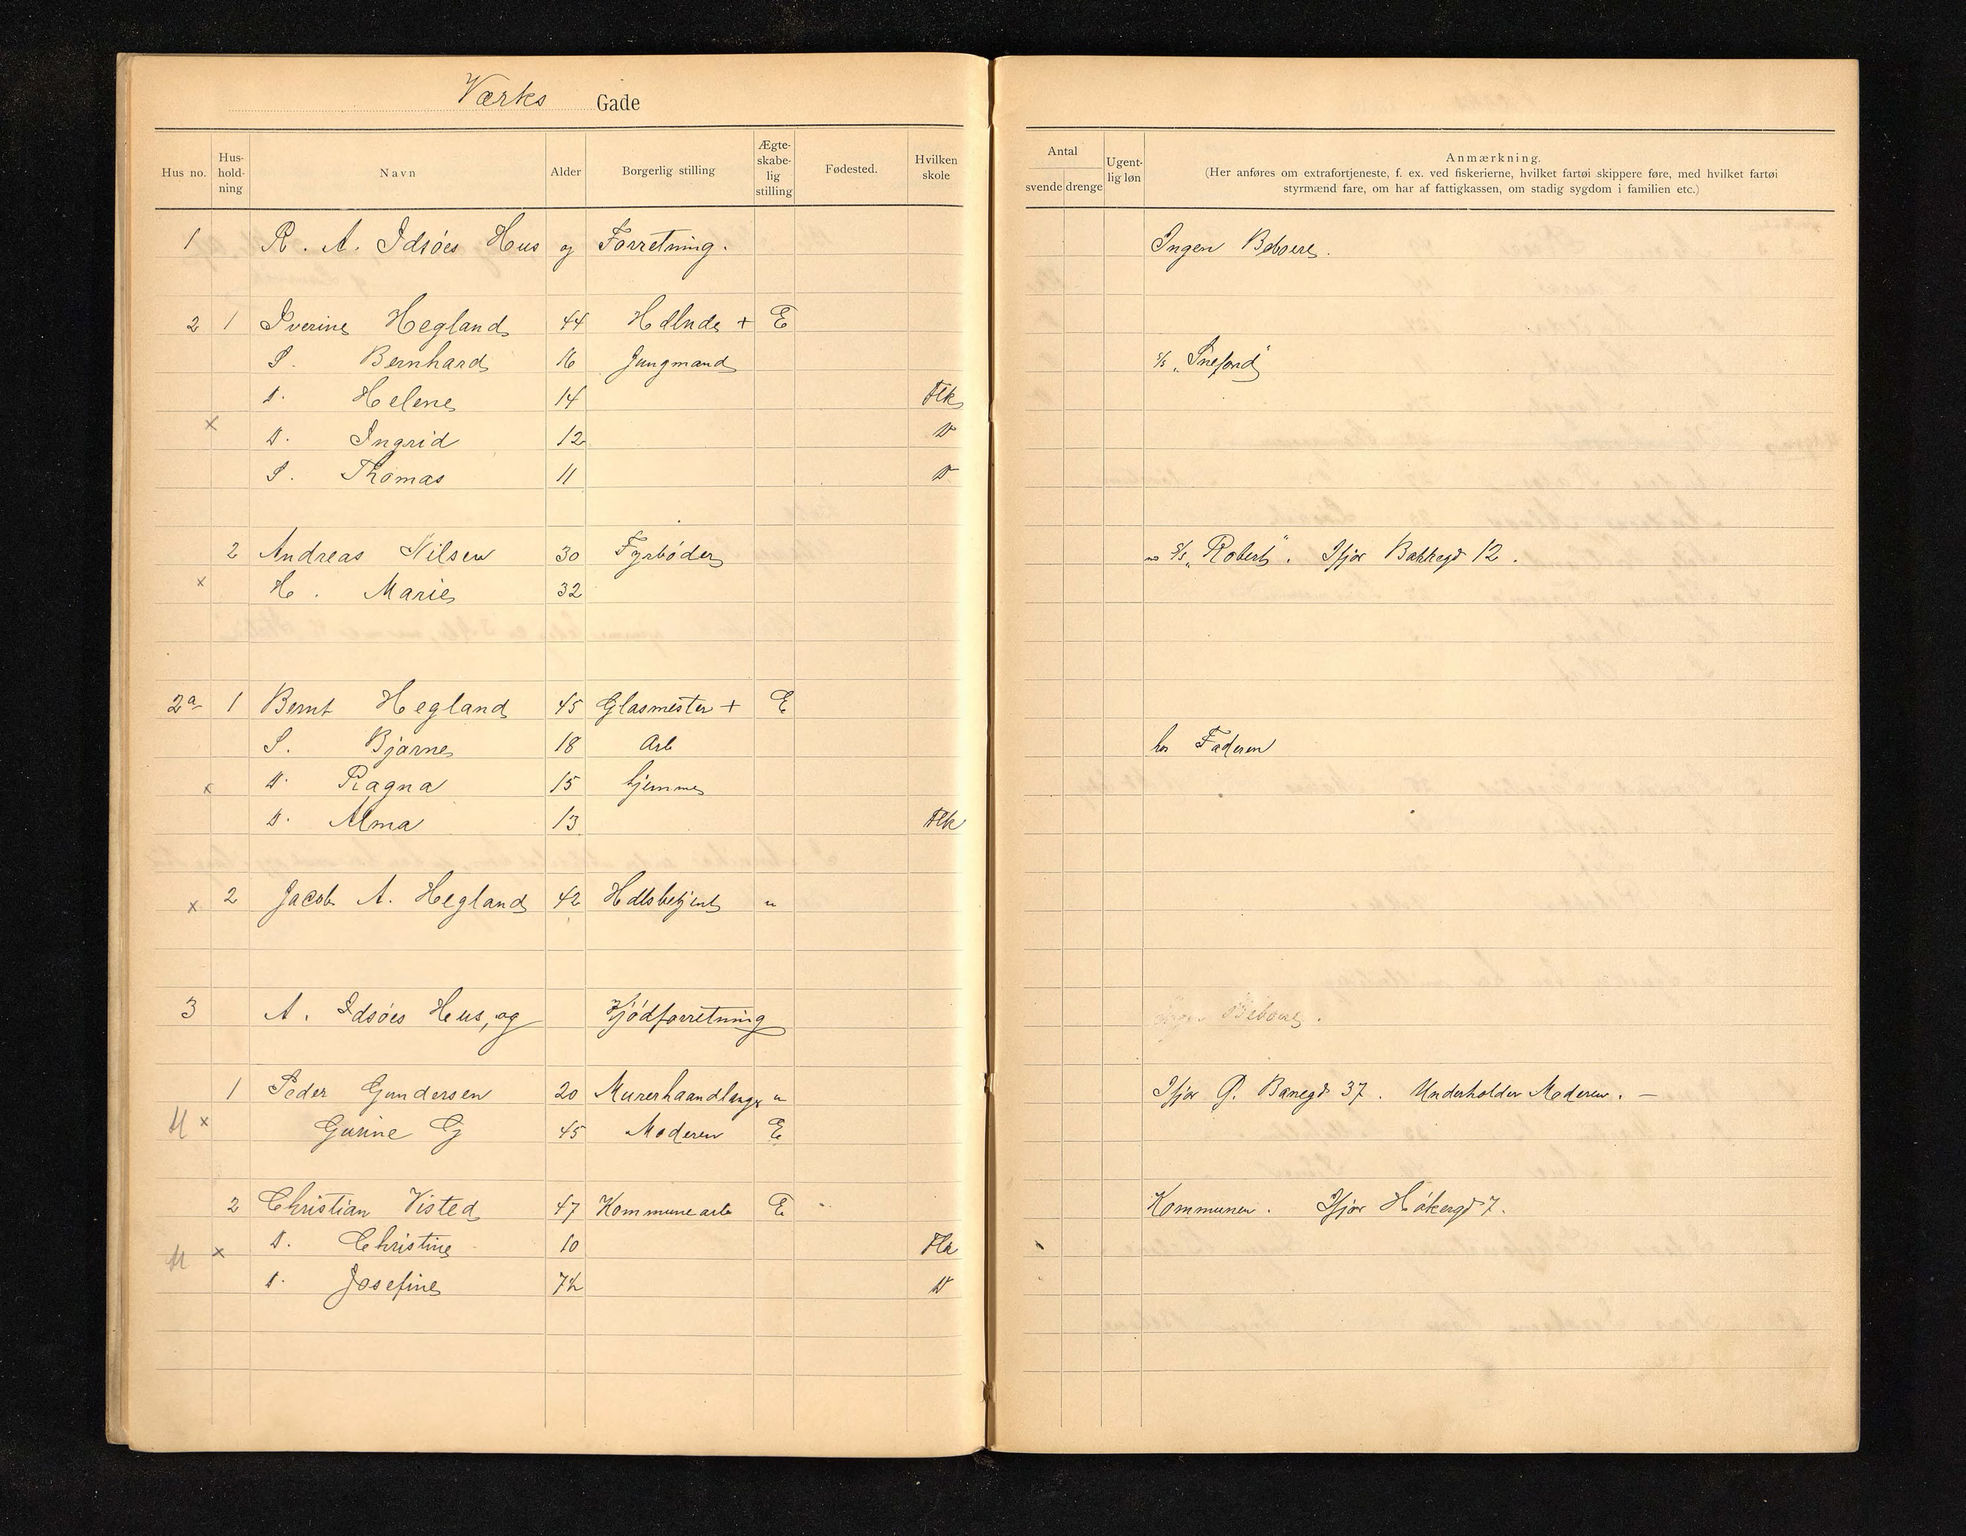 Værks Gade
Hus no. Hus-hold-ning Navn Alder Borgerlig stilling Ægte-skabe-lig stilling Fødested. Hvilken skole
Antal svende drenge Ugent-lig løn Anmærkning.
(Her anføres om extrafortjeneste, f. ex. ved fiskerierne, hvilket fartøi skippere føre, med hvilket fartøi
styrmænd fare, om har af fattigkassen, om stadig sygdom i familien etc.)
1 R. A. Idsöes Hus og Forretning. Ingen Beboere.
2 1 Iverine Hegland 44 Hdlnde + E
S. Bernhard 16 Jungmand S/S "Snefond"
D. Helene 14 Flk
x D. Ingrid 12 D
S. Thomas 11 D
2 Andreas Nilsen 30 Fyrbøder S/S "Robert". Ifjor Bakkegd 12.
x H. Marie 32
2a 1 Bernt Hegland 45 Glasmester + E
S. Bjarne 18 Arb hos Faderen
x D. Ragna 15 hjemme
D. Alma 13 Flk
x 2 Jacob A. Hegland 42 Hdlsbetjent u
3 A. Idsöes Hus, og Kjödforretning Ingen Beboere.
1 Peder Gundersen 20 Murerhaandlanger u Ifjor P. Banegd 37. Underholder Moderen. —
M x Gurine G 45 Moderen E
2 Christian Visted 47 Kommunearb E Kommunen. Ifjor Hökergd 7.
M x D. Christine 10 Flk
D. Josefine 7½ D